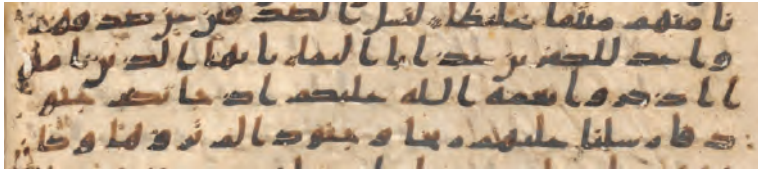 نا منهم ميثقا غليظا ليسل الصدقين عن صدقهم
واعد للكفرين عذابا اليما يايها الذين امنو
ا اذكروا نعمة الله عليكم اذ جاتكم جنو
د فارسلنا عليهم ريحا وجنودا لم تروها وكا